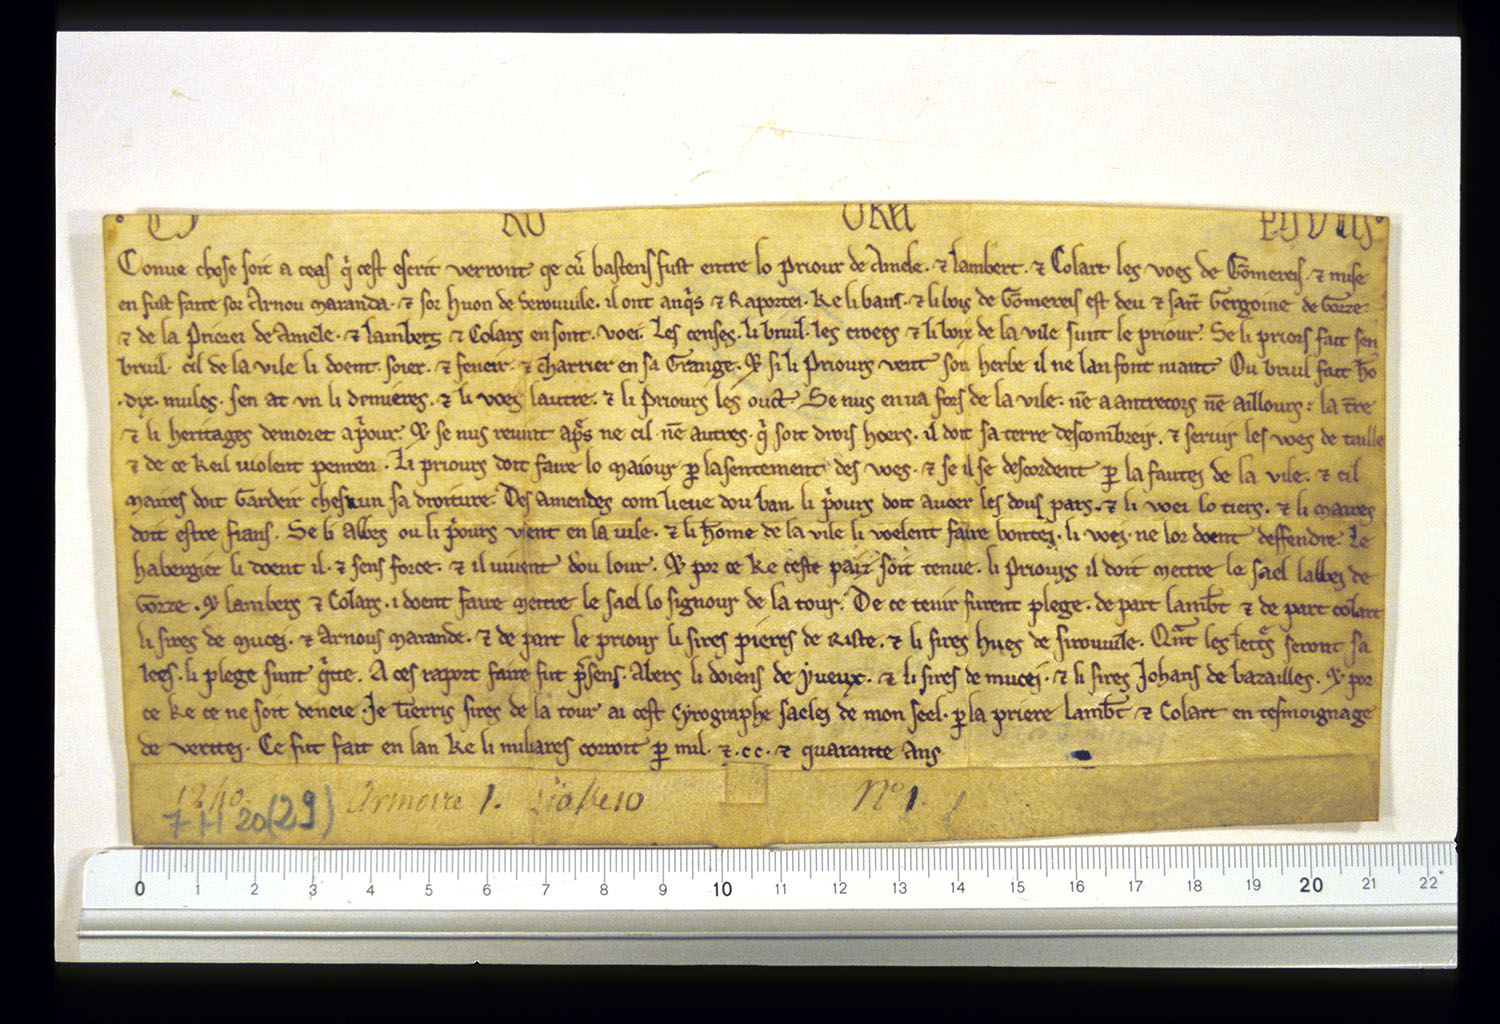 Conue chose soit a ceas q̓ cest escrit verront qe cū bastens fust entre lo priour de Amele · ⁊ lambert · ⁊ Colart les voes de Gōmereis · ⁊ mise
en fust faite sor Arnou maranda · ⁊ sor huon de Serouuile · il ont anq̓s ⁊ Raportei · Ke li bans · ⁊ li bois de Gōmereis est deu ⁊ sait Gergoine de Gorze
⁊ de la Priorei de Amele · ⁊ lamberz ⁊ Colars en sont · voei · Les censes · li bruil · les crwees ⁊ li boix de la vile sunt le priour · Se li priors fait sen
bruil · cil de la vile li doent · soier · ⁊ feneir · ⁊ charrier en sa Grange · ⁊ si li Priours vent son herbe il ne lan font niant Ou bruil fait hō
· dix · mules · sen at vn li dēnieres · ⁊ li voes lautre · ⁊ li Priours les ouct Se nus en ua fors de la vile · nē a antrecors nē aillours : la t̄re
⁊ li heritages demoret a p̓our · ⁊ se nus reuint ap̓s ne cil · nē autres · q̓ soit drois hoers · il doit sa terre descombreir · ⁊ seruir les voes de taille
⁊ de ce Keil uiolent penren · Li priours doit faire lo maiour ꝑ lasentement des voes · ⁊ se il se descordent ꝑ la fautes de la vile · ⁊ cil
maires doit Gardeir chesxun sa droiture · Des Amendes com lieue dou ban li p̓ours doit auoer les dous pars · ⁊ li voei lo tiers · ⁊ li maires
doit estre frans · Se li Abbes ou li p̓ours vient en la uile · ⁊ li hōme de la vile li voelent faire bontei · li voei · ne lor doent deffendre · Le
habergier li doent il · ⁊ sens force · ⁊ il uiuent dou lour · ⁊ por ce Ke ceste paix soit tenue · li Priours il doit mettre le sael labbei de
Gorze · ⁊ lambers ⁊ Colars · i doent faire mettre le sael lo signour de la tour · De ce tenir furent plege · de part lamb̄t ⁊ de part colart
li sires de mucei · ⁊ Arnous marande · ⁊ de part le priour li sires pieres de Riste · ⁊ li sires hues de sirouuile · Qn̄t les lett̓s seront sa
lees · li plege sunt q̓tte · A ces raport faire fut p̓sens · Abers li doiens de yueux · ⁊ li sires de mucei · ⁊ li sires Johans de bazailles · ⁊ por
ce Ke ce ne soit deneie Je Tierris sires de la tour ai cest Cyrographe saelei de mon seel · ꝑ la priere lamb̄t ⁊ Colart en tesmoignage
de veritei · Ce fut fait en lan Ke li miliares corroit ꝑ mil · ⁊ · cc · ⁊ quarante Ans
1240 Armoire 1. N° 1.
7 H 20 (29)
0 1 2 3 4 5 6 7 8 9 10 11 12 13 14 15 16 17 18 19 20 21 22